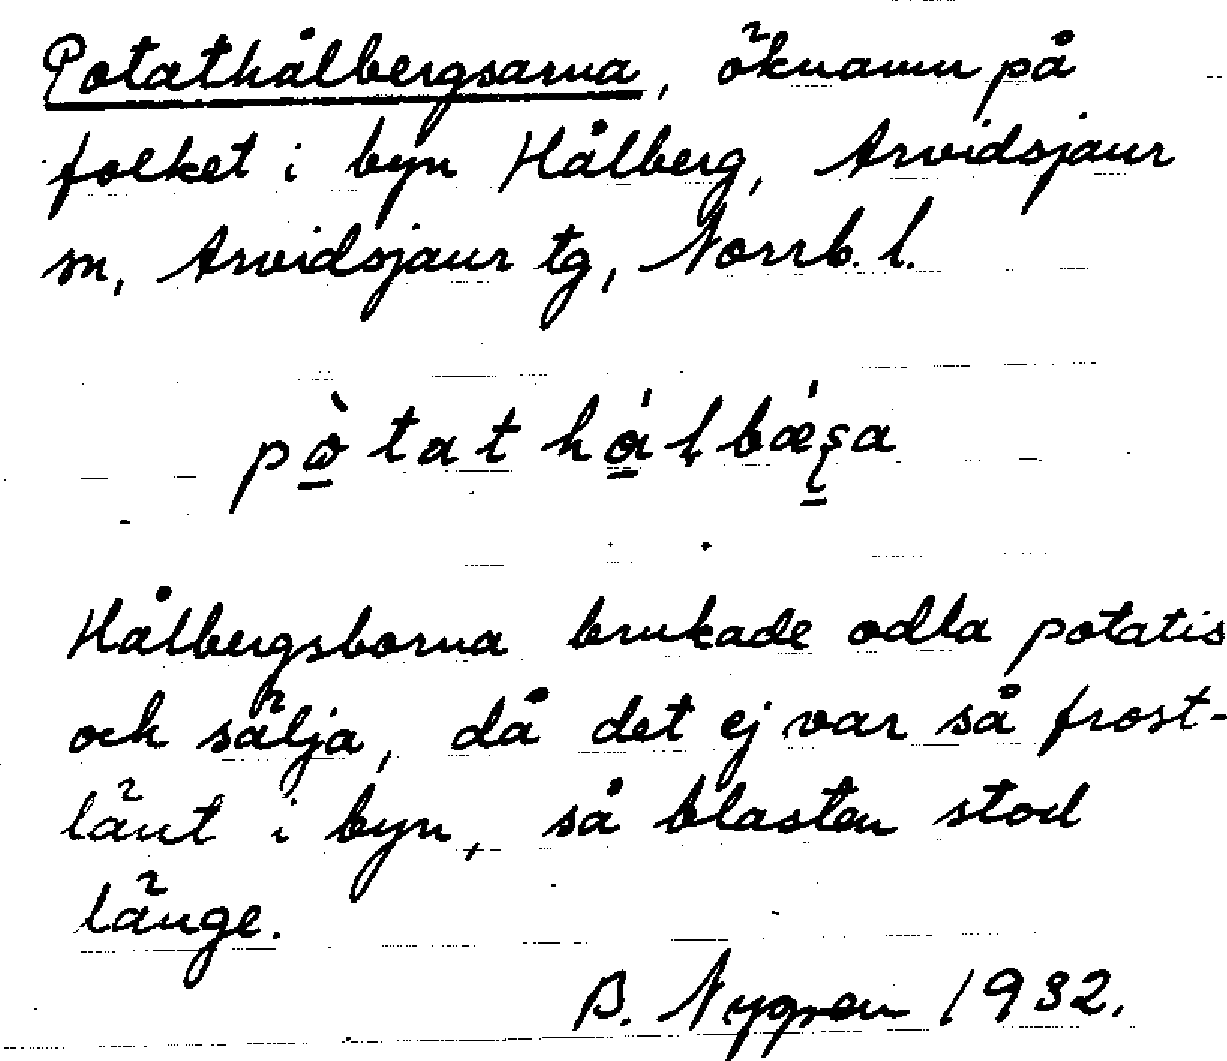 Potathålbergsarna, öknamn på
folket i byn Hålberg, Arvidsjaur
sn, Arvidsjaur tg, Norrb. l.
Hålbergsborna brukade odla potatis
och sälja, då det ej var så frost-
länt i byn, så blasten stod
länge.
B. Nygren 1932.